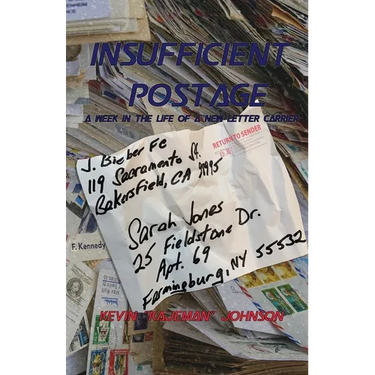 INSUFFICIENT
POSTAGE
A WEEK IN THE LIFE OF A NEW LETTER CARRIER
RETURN TO SENDER
J. Bieber Fe
119 Sacramento St.
Bakersfield, CA 39975
Sarah Jones
25 Fieldstone Dr.
Apt. 69
Farmingburg, NY 55532
F. Kennedy
KEVIN "RAJEMAN" JOHNSON